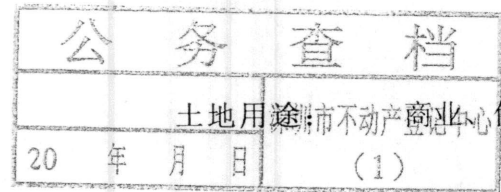 公务查档
土地用途：商业、
深圳市不动产登记中心
20 年 月 日
（1）